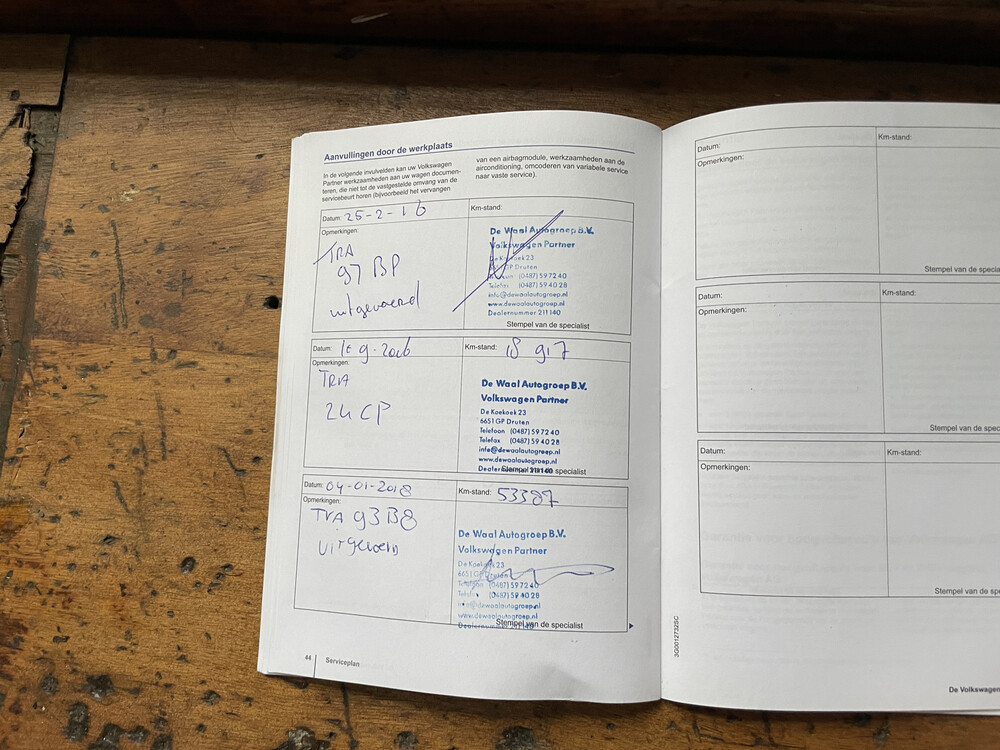 Aanvullingen door de werkplaats
In de volgende invulvelden kan uw Volkswagen
Partner werkzaamheden aan uw wagen documen-
teren, die niet tot de vastgestelde omvang van de
servicebeurt horen (bijvoorbeeld het vervangen
van een airbagmodule, werkzaamheden aan de
airconditioning, omcoderen van variabele service
naar vaste service).
Datum: 25-2-16
Km-stand:
Opmerkingen:
TRA
97 BP
uitgevoerd
De Waal Autogroep B.V.
Volkswagen Partner
De Koekoek 23
GP Druten
(0487) 59 72 40
Telefax (0487) 59 40 28
info@dewaalautogroep.nl
www.dewaalautogroep.nl
Dealernummer 211140
Stempel van de specialist
Datum: 9-2016
Km-stand: 18 917
Opmerkingen:
TRA
24 CP
De Waal Autogroep B.V.
Volkswagen Partner
De Koekoek 23
6651 GP Druten
Telefoon (0487) 59 72 40
Telefax (0487) 59 40 28
info@dewaalautogroep.nl
www.dewaalautogroep.nl
Dealernummer 211140
Stempel van de specialist
Datum: 04-01-2018
Km-stand: 53387
Opmerkingen:
TRA 93B8
De Waal Autogroep B.V.
Volkswagen Partner
De Koekoek 23
6651 GP Druten
Telefoon (0487) 59 72 40
Telefax (0487) 59 40 28
info@dewaalautogroep.nl
www.dewaalautogroep.nl
Dealernummer 211140
Stempel van de specialist
44 Serviceplan
Datum:
Km-stand:
Opmerkingen:
Stempel van de specia
Datum:
Km-stand:
Opmerkingen:
Stempel van de spec
Datum:
Km-stand:
Opmerkingen:
Stempel van de spe
3G0012732SC
De Volkswagen